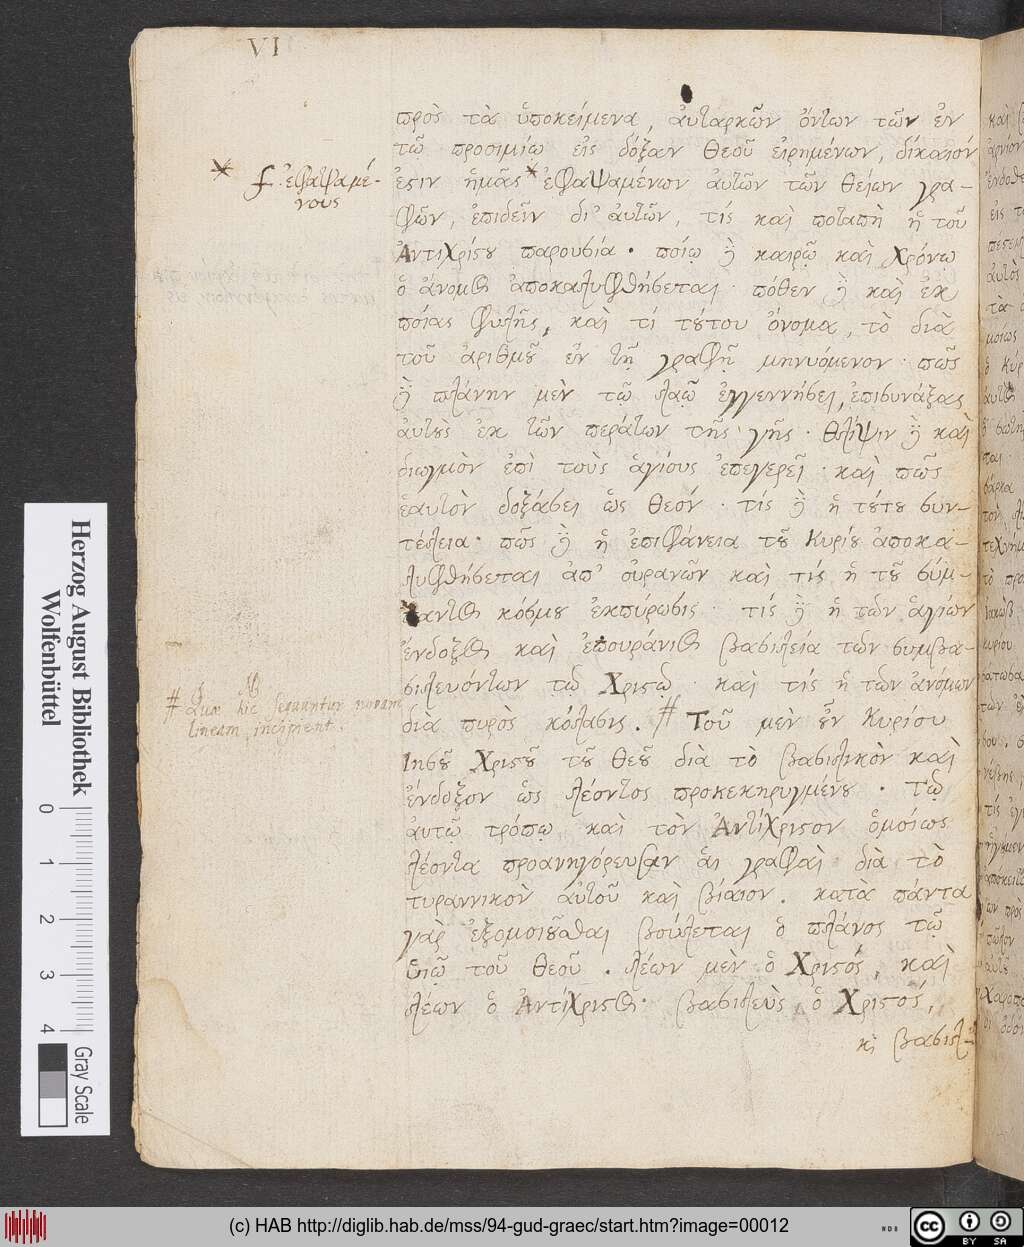 VI
πρὸς τὰ ὑποκείμενα, ἀυταρκῶν ὄντων τῶν ἐν
τῶ προοιμίῳ εἰς δόξαν θεοῦ εἰρημένων, δίκαιόν
ἐστιν ἡμᾶς * ἐφαψαμένων ἀυτῶν τῶν θείων γρα-
φῶν, ἐπιδεῖν δι' ἀυτῶν, τίς καὶ ποταπὴ ἡ τοῦ
Ἀντιχρίστου παρουσία · ποίῳ δὲ καιρῷ καὶ χρόνω
ὁ ἄνομος ἀποκαλυφθήσεται · πόθεν δὲ καὶ ἐκ
ποίας φυλῆς, καὶ τί τούτου ὄνομα, τὸ διὰ
τοῦ ἀριθμοῦ ἐν τῇ γραφῇ μηνυόμενον · πῶς
δὲ πλάνην μὲν τῷ λαῷ ἐγγεννήσει, ἐπισυνάξας
ἀυτοὺς ἐκ τῶν περάτων τῆς γῆς · θλίψιν δὲ καὶ
διωγμὸν ἐπὶ τοὺς ἁγίους ἐπεγερεῖ · καὶ πῶς
ἑαυτὸν δοξάσει ὡς θεόν · τίς δὲ ἡ τούτου συν-
τέλεια · πῶς δὲ ἡ ἐπιφάνεια τοῦ Κυρίου ἀποκα-
λυφθήσεται ἀπ' οὐρανῶν καὶ τίς ἡ τοῦ σύμ-
παντος κόσμου ἐκπύρωσις · τίς δὲ ἡ τῶν ἁγίων
ἔνδοξος καὶ ἐπουράνιος βασιλεία τῶν συμβα-
σιλευόντων τῷ Χριστῷ · καὶ τίς ἡ τῶν ἀνόμων
διὰ πυρὸς κόλασις. # Τοῦ μὲν ἐν Κυρίου
Ιησοῦ Χριστοῦ τοῦ θεοῦ διὰ τὸ βασιλικὸν καὶ
ἔνδοξον ὡς λέοντος προκεκηρυγμένου · τῷ
ἀυτῷ τρόπῳ καὶ τὸν Ἀντίχριστον ὁμοίως
λέοντα προανηγόρευσαν ἁι γραφαὶ διὰ τὸ
τυραννικὸν ἀυτοῦ καὶ βίαιον. κατὰ πάντα
γὰρ ἐξομοιοῦσθαι βούλεται ὁ πλάνος τῷ
ὑιῷ τοῦ θεοῦ. λέων μὲν ὁ Χριστός, καὶ
λέων ὁ Ἀντίχριστος · βασιλεὺς ὁ Χριστός,
κὶ βασιλ-
* f. ἐφαψαμέ-
νους
# NB
Quæ hic sequuntur novam
lineam incipient.
Herzog August Bibliothek
Wolfenbüttel
0 1 2 3 4
Gray Scale
(c) HAB http://diglib.hab.de/mss/94-gud-graec/start.htm?image=00012
cc BY SA